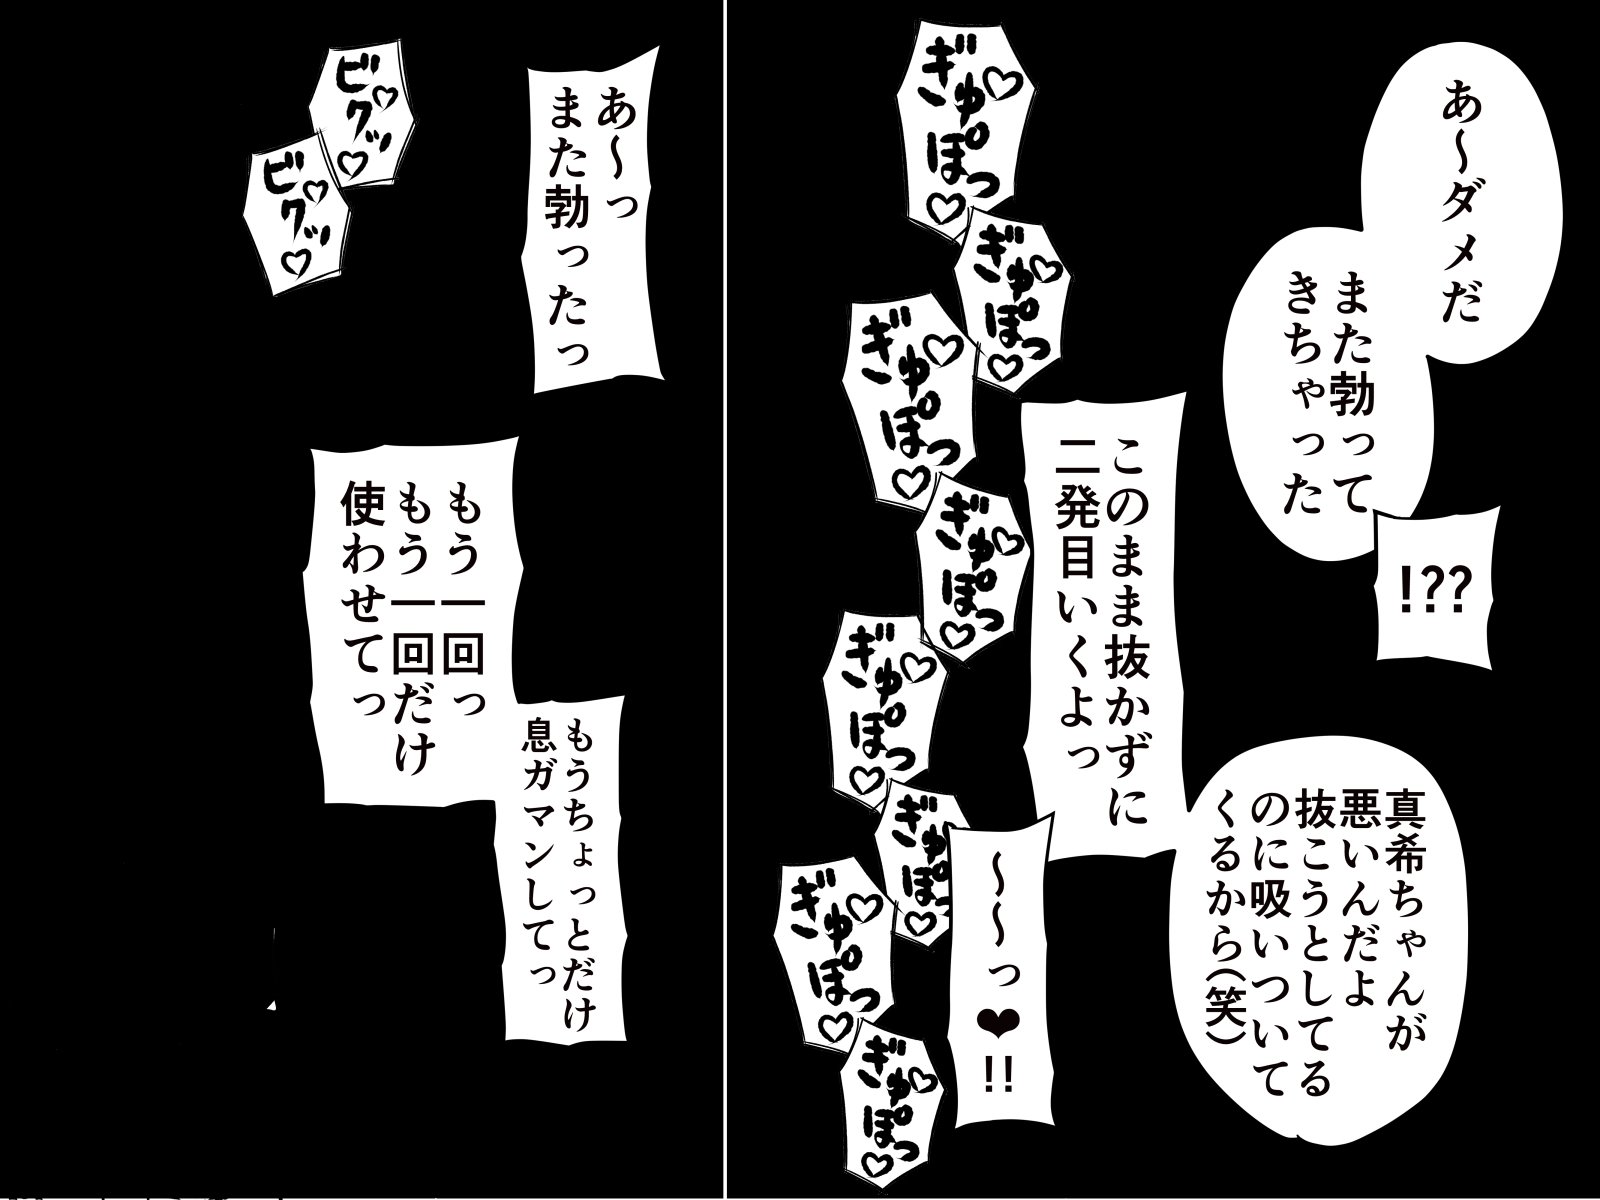 あ〜ダメだ
また勃って
きちゃった
!??
真希ちゃんが
悪いんだよ
抜こうとしてる
のに吸いついて
くるから(笑)
このまま抜かずに
二発目いくよっ
〜〜っ❤!!
ぎゅぽっ♡♡
ぎゅぽっ♡♡
ぎゅぽっ♡♡
ぎゅぽっ♡♡
ぎゅぽっ♡♡
ぎゅぽっ♡
ぎゅぽっ♡♡
ぎゅぽっ♡♡
あ〜っ
また勃ったっ
もうちょっとだけ
息ガマンしてっ
もう一回っ
もう一回だけ
使わせてっ
ビクッ♡♡
ビクッ♡♡